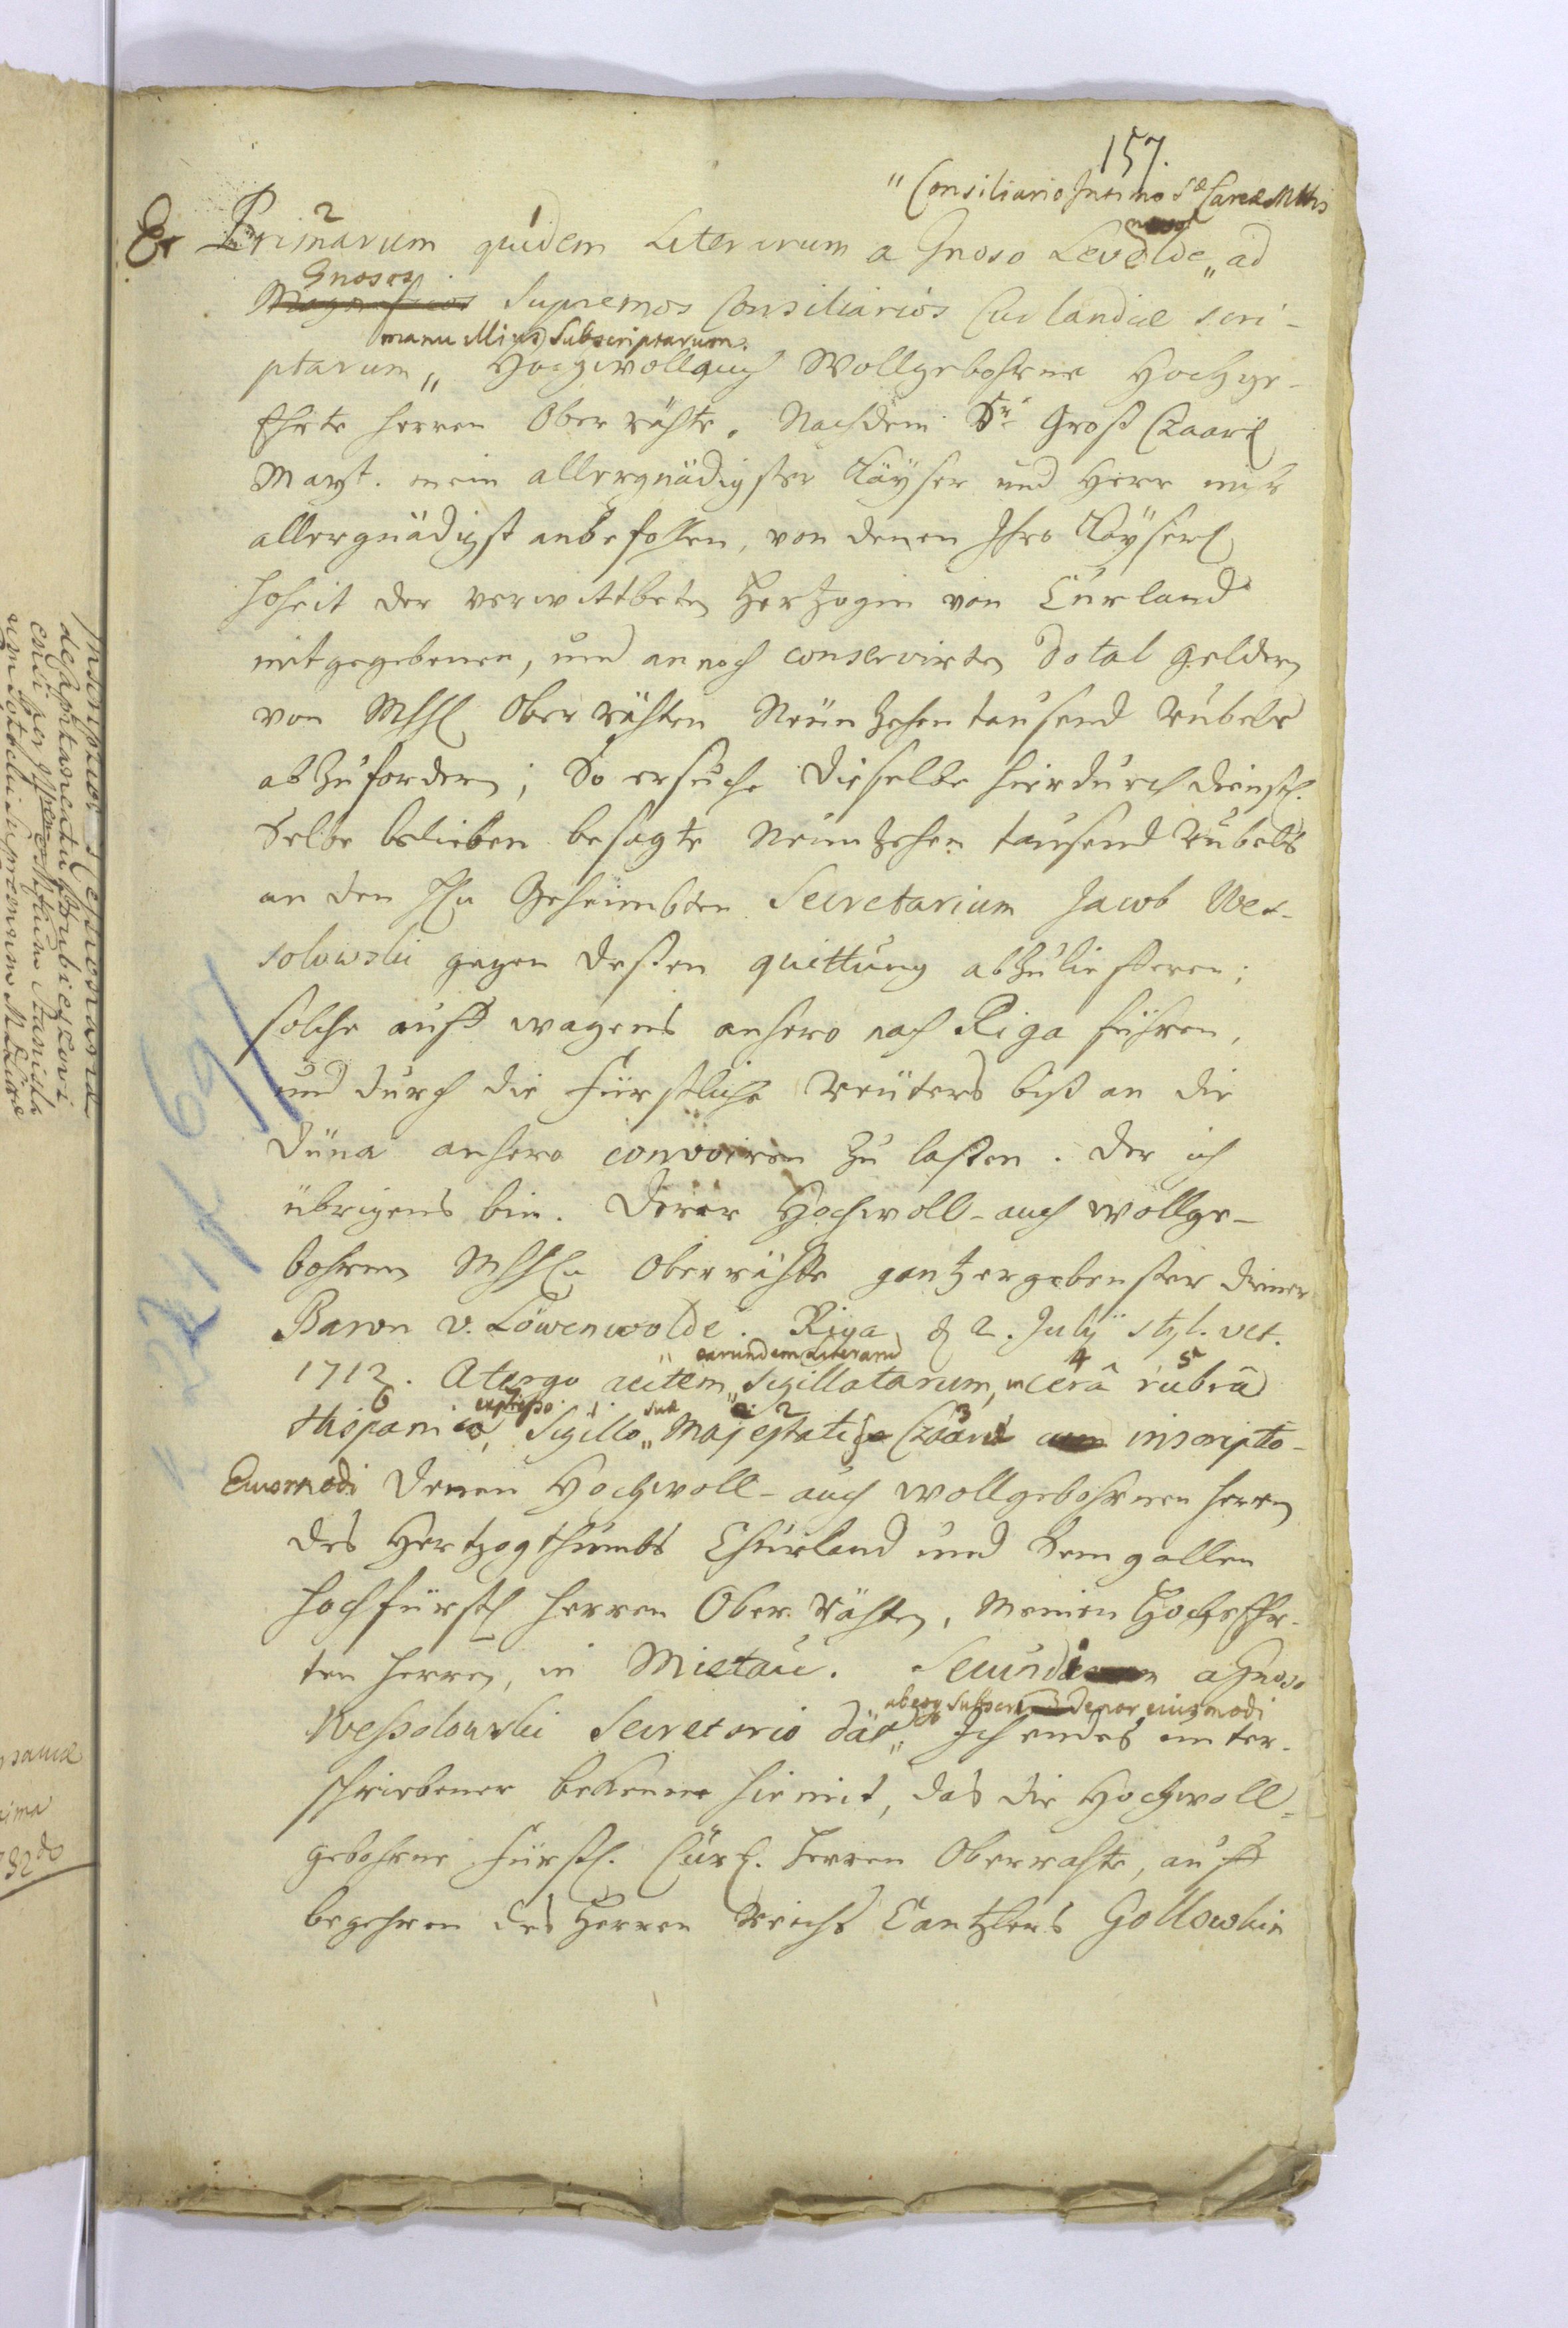 157.
" Consiliario Intimo Sæ Czareæ Mttis
Et Primarum quidem Literarum a Gnoso Levolde " ad
Gnosos
Supremos Consiliarios Curlandiæ scri-
manu illius Subscriptarum.
ptarum " Hochwoll auch Wollgebohrne Hochge-
Ehrte Herren Ober rähte. Nachdem Sr. Groß Czaarl
Mayt. mein allergnädigster Käyser und Herr mihr
allergnädigst anbefohlen, von denen Ihro Käyserl
Hoheit der verwittbeten Hertzogin von Curland
mitgegebenen, und annoch conservirten Dotal geldern
von MhhE Ober rähten Neünzehen tausend Rubels
abzufordern; So ersuche dieselbe hierdurch dienstl.
Selbe belieben besagte Neunzehen tausend Rubels
an den Hn Geheimbten Secretarium Jacob Wes-
solowski gegen deßen quittung abzulieferen;
solche auff wagens anhero nach Riga führen,
und durch die Fürstliche Reüters biß an die
Düna anhero convoiren zu laßen. Der ich
übrigens bin. Derer Hochwoll- auch wollge-
bohrnen MhhEn Oberrähte gantz ergebenster diener
Baron v. Löwenwolde. Riga d 2. July styl. vet.
earundem Literarum
1712. A tergo autem " Sigillatarum, in cerâ rubrâ
expresso suæ
Hispanica, Sigillo " Majestatis Czaareæ inscripto-
Eiusmodi Denen Hochwoll- auch wollgebohrnen Herren
des Hertzogthumbs Churland und Semgallen
Hochfürstl Herren Ober Rähten, Meinen Hochgeehr-
ten Herren, in Mietau. Secundi a Gnoso
ab eoq Subscri tenor eiusmodi
Wessolowski Secretario dat " Ich endes unter-
schriebener bekenne hiemit, das die Hochwoll-
gebohrne Fürstl. Curl. Herren Oberrahte, auff
begehren des Herren Reichs Cantzlers Gollowkin